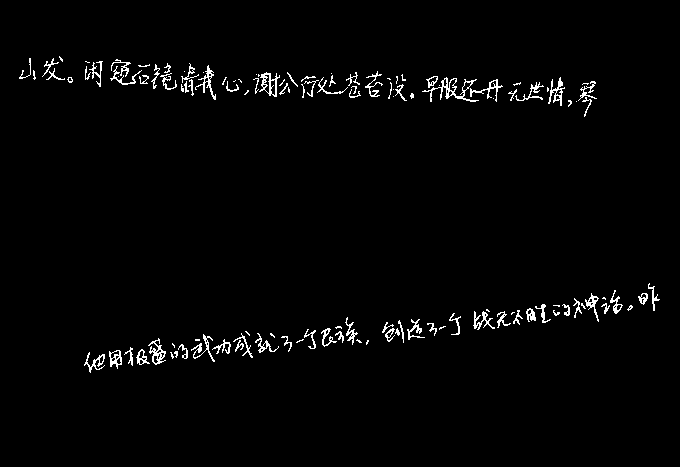 山发。闲窥石镜清我心，谢公行处苍苔没。早服还丹无世情，琴
他用极盛的武功成就了一个民族，创造了一个战无不胜的神话。昨